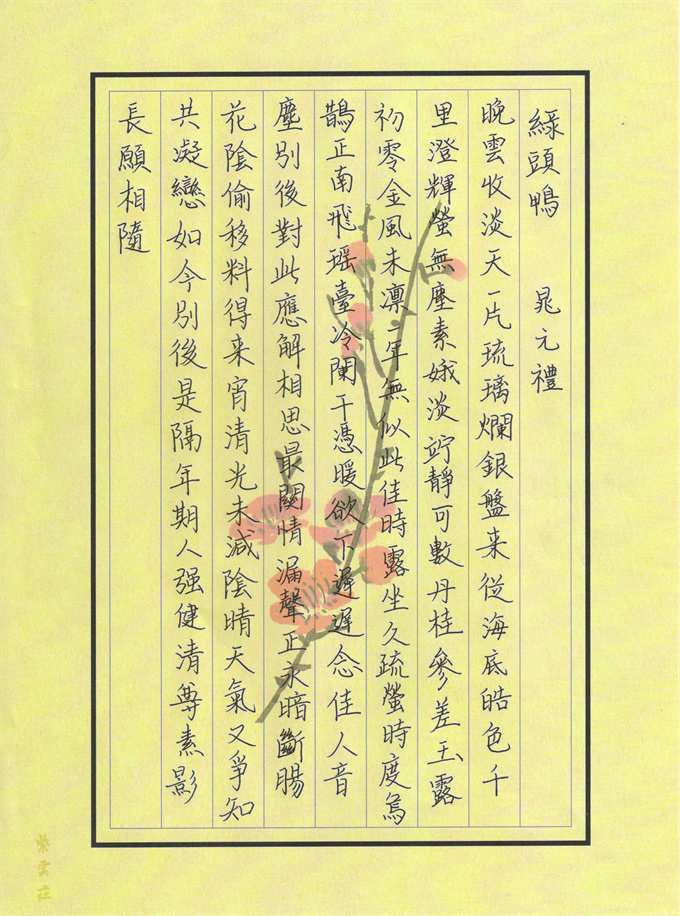 綠頭鴨 晁元禮
晚雲收淡天一片琉璃爛銀盤来從海底皓色千
里澄輝螢無塵素娥淡竚靜可數丹桂參差玉露
初零金風未凛一年無似此佳時露坐久疏螢時度烏
鵲正南飛瑶臺冷闌干憑暖欲下遲遲念佳人音
塵别後對此應解相思最關情漏聲正永暗斷腸
花陰偷移料得来宵清光未減陰晴天氣又爭知
共凝戀如今别後是隔年期人强健清尊素影
長願相隨